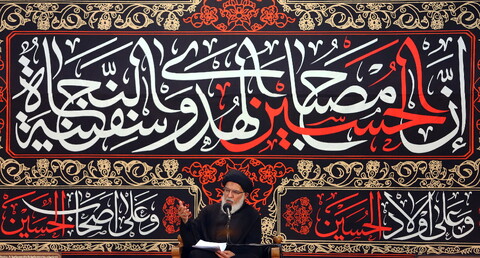 إن الحسين مصباح الهدى و سفينة النجاة
وعلى أولاد الحسين
وعلى أصحاب الحسين